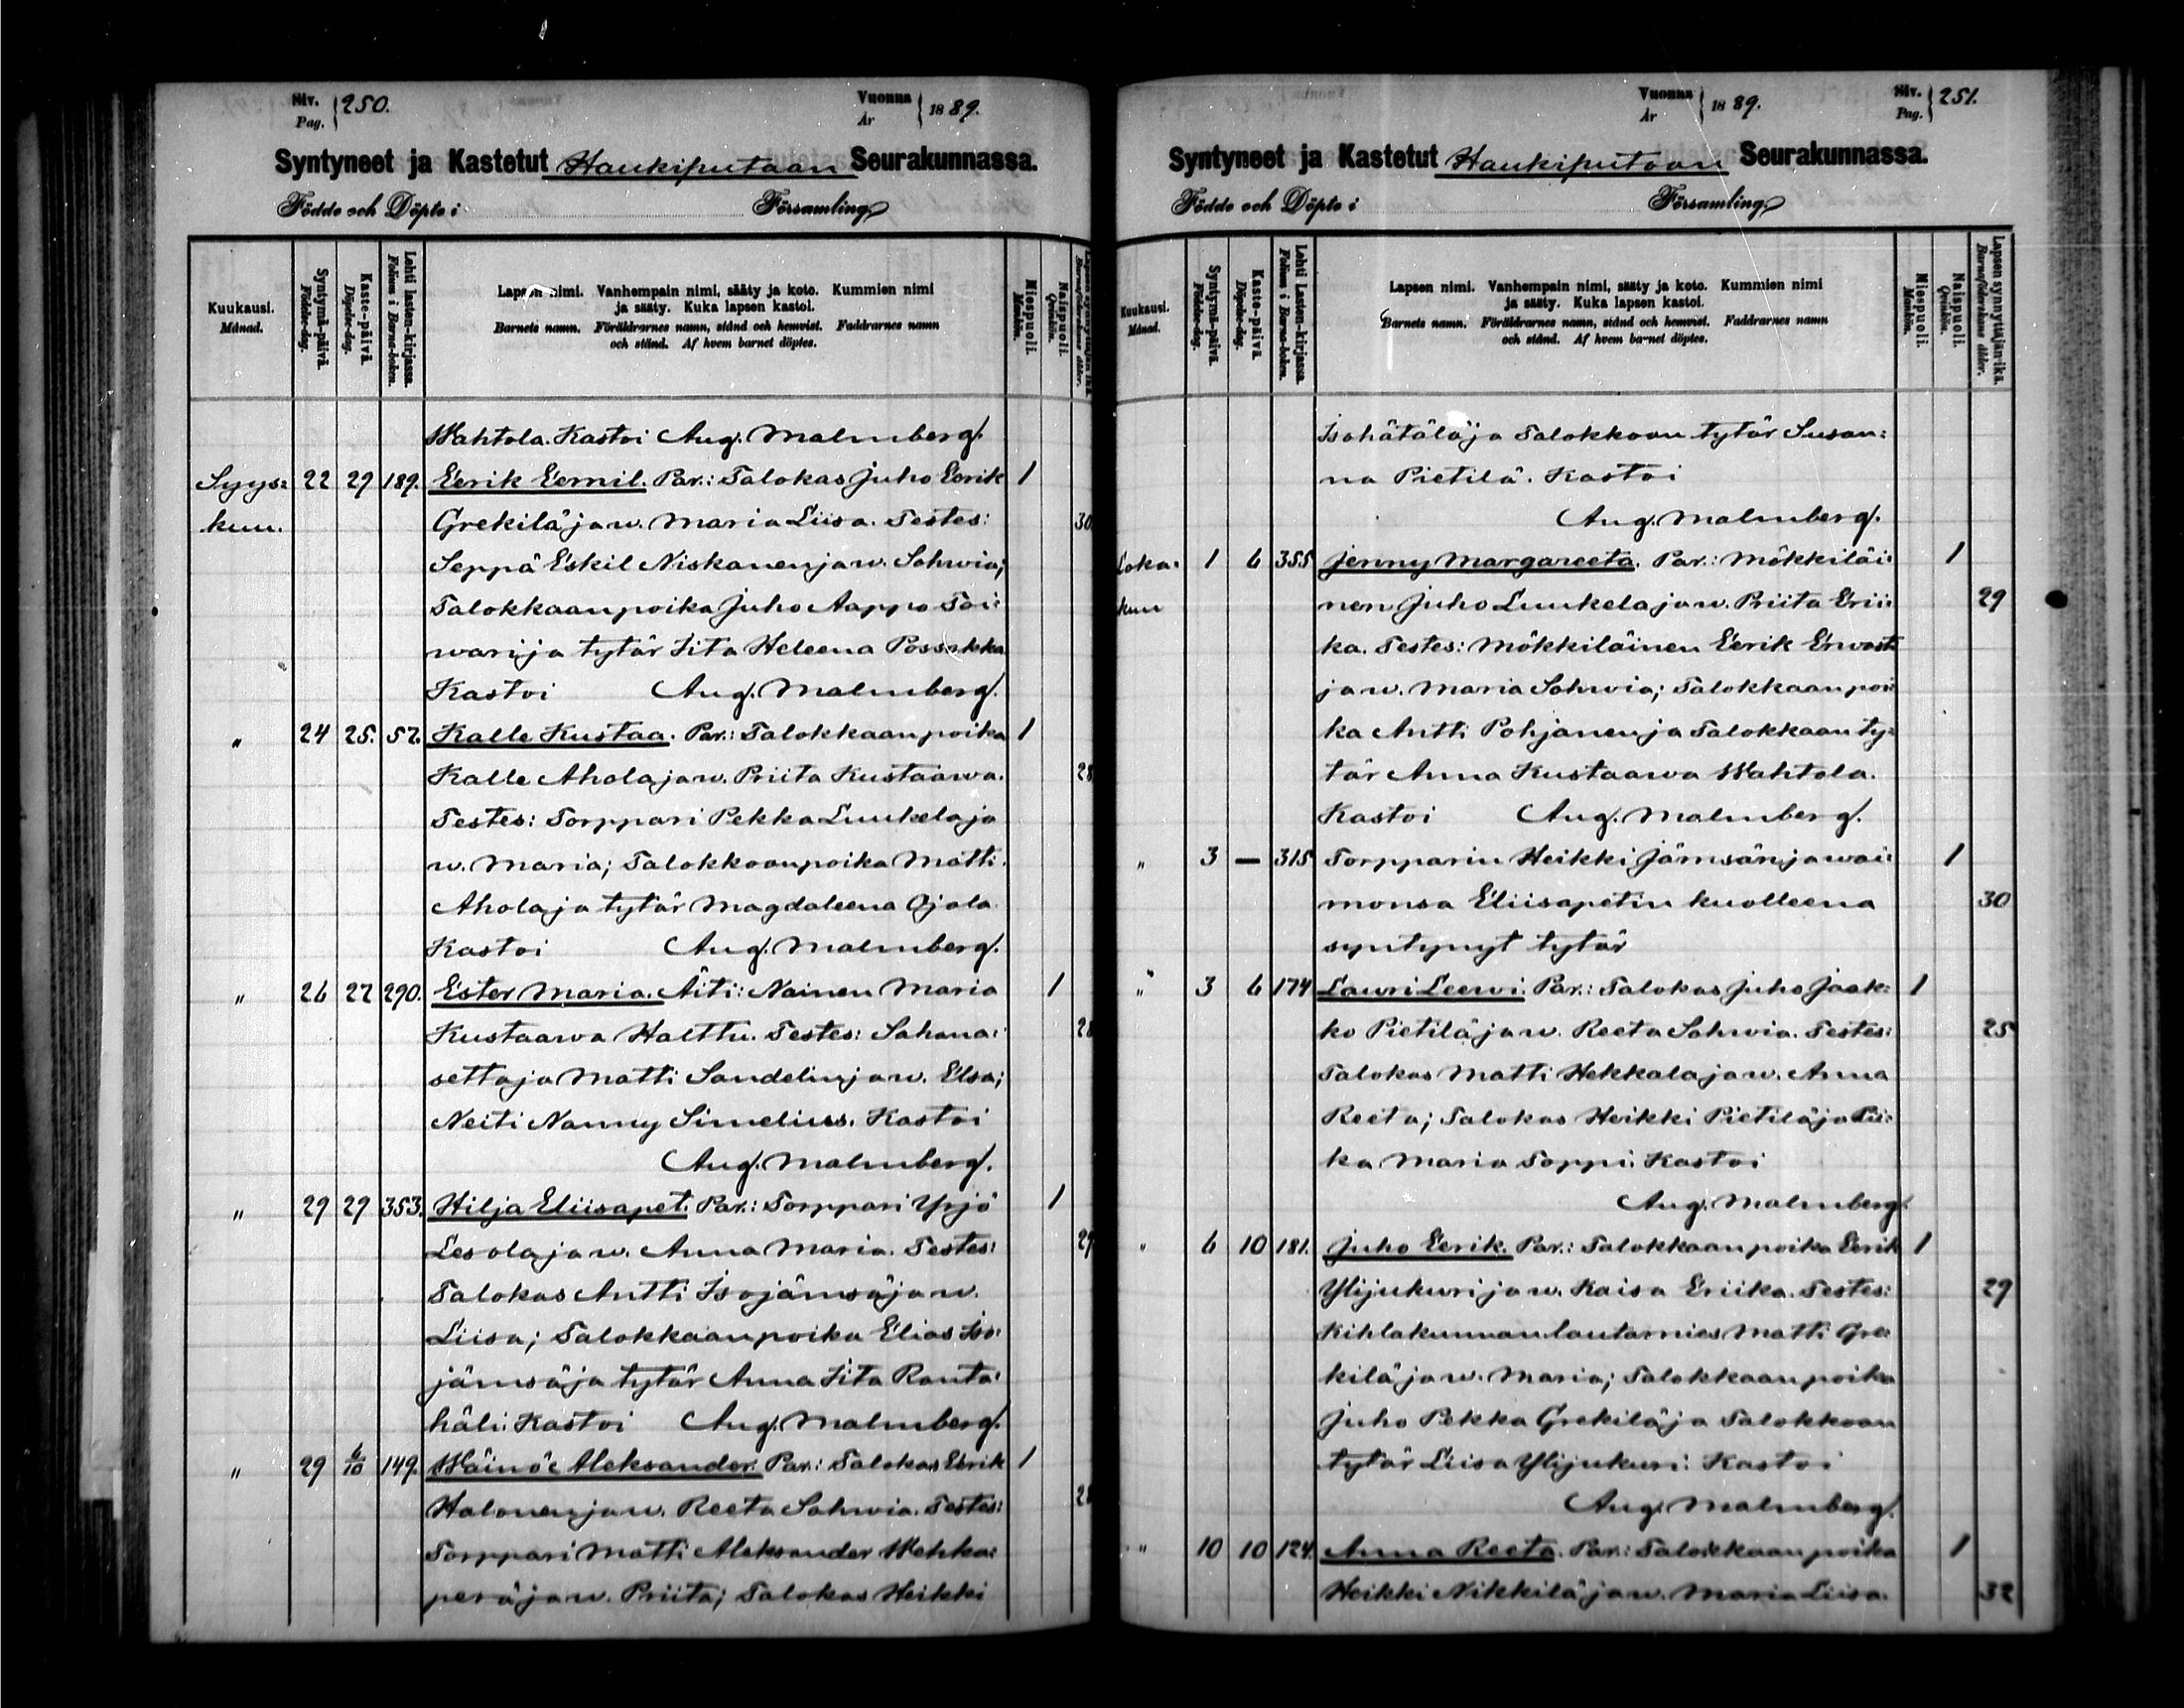 Siv. Pag. 250. Vuonna År 1889.
Syntyneet ja Kastetut Haukiputaan Seurakunnassa.
Födde och Döpte i Församling
Kuukausi. Månad.
Syntymä-päivä. Födelse-dag.
Kaste-päivä. Döpelse-dag.
Lehti lasten-kirjassa. Folium i Barna-boken.
Lapsen nimi. Vanhempain nimi, sääty ja koto. Kummien nimi
ja sääty. Kuka lapsen kastoi.
Barnets namn. Föräldrarnes namn, stånd och hemvist. Faddrarnes namn
och stånd. Af hvem barnet döptes.
Miespuoli. Mankön.
Naispuoli. Qvinkön.
Wahtola. Kastoi Aug. Malmberg.
Syys: 22 29 189. Eerik Eemil. Par.: Talokas Juho Eerik 1
kuu. Grekilä ja w. Maria Liisa. Testes: 30
Seppä Eskil Niskanen ja w. Sohwia;
Talokkaan poika Juho Aappo Toi:
wari ja tytär Iita Heleena Possakka
Kastoi Aug. Malmberg.
" 24 25. 57. Kalle Kustaa. Par.: Talokkaan poika 1
Kalle Ahola ja w. Priita Kustaawa. 28
Testes: Torppari Pekka Luukela ja
w. Maria; Talokkaan poika Matti
Ahola ja tytär Magdaleena Ojala
Kastoi Aug. Malmberg.
" 26 27 290. Ester Maria. Äiti: Nainen Maria 1
Kustaawa Halttu. Testes: Sahana: 28
settaja Matti Sandelin ja w. Elsa;
Neiti Nanny Simelius. Kastoi
Aug. Malmberg.
" 29 29 353. Hilja Eliisapet. Par.: Torppari Yrjö 1
Lesola ja w. Anna Maria. Testes: 29
Talokas Antti Isojämsä ja w.
Liisa; Talokkaan poika Elias Iso:
jämsä ja tytär Anna Iita Ranta:
häli. Kastoi Aug. Malmberg.
" 29 6/10 149. Wäinö Aleksander. Par.: Talokas Eerik 1
Halonen ja w. Reeta Sohwia. Testes: 28
Torppari Matti Aleksander Wehka:
perä ja w. Priita; Talokas Heikki
Vuonna År 1889. Siv. Pag. 251.
Syntyneet ja Kastetut Haukiputaan Seurakunnassa.
Födde och Döpte i Församling
Kuukausi. Månad.
Syntymä-päivä. Födelse-dag.
Kaste-päivä. Döpelse-dag.
Lehti Lasten-kirjassa. Folium i Barna-boken.
Lapsen nimi. Vanhempain nimi, sääty ja koto. Kummien nimi
ja sääty. Kuka lapsen kastoi.
Barnets namn. Föräldrarnes namn, stånd och hemvist. Faddrarnes namn
och stånd. Af hvem barnet döptes.
Miespuoli. Mankön.
Naispuoli. Qvinkön.
Lapsen synnyttäjän ikä. Barnaföderskans ålder.
Isohätälä ja Talokkaan tytär Susan:
na Pietilä. Kastoi
Aug. Malmberg.
Loka: 1 6 355 Jenny Margareeta. Par.: Mökkiläi: 1
kuu nen Juho Luukela ja w. Priita Erii: 29
ka. Testes: Mökkiläinen Eerik Erwasti
ja w. Maria Sohwia; Talokkaan poi:
ka Antti Pohjanen ja Talokkaan ty:
tär Anna Kustaawa Wahtola.
Kastoi Aug. Malmberg.
" 3 — 315 Torpparin Heikki Jämsän ja wai: 1
monsa Eliisapetin kuolleena 30
syntynyt tytär
" 3 6 174 Lauri Leewi. Par.: Talokas Juho Jaak: 1
ko Pietilä ja w. Reeta Sohwia. Testes: 25
Talokas Matti Hekkala ja w. Anna
Reeta; Talokas Heikki Pietilä ja Pii:
ka Maria Soppi. Kastoi
Aug. Malmberg.
" 6 10 181. Juho Eerik. Par.: Talokkaan poika Eerik 1
Ylijukuri ja w. Kaisa Eriika. Testes: 29
Kihlakunnan lautamies Matti Gre:
kilä ja w. Maria; Talokkaan poika
Juho Pekka Grekilä ja Talokkaan
tytär Liisa Ylijukuri. Kastoi
Aug. Malmberg.
" 10 10 124. Anna Reeta. Par.: Talokkaan poika 1
Heikki Nikkilä ja w. Maria Liisa. 32